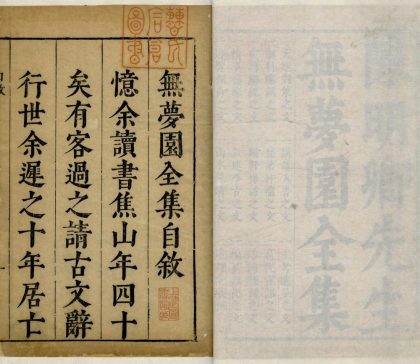 陳明卿先生
無夢園全集
無夢園全集自敘
憶余讀書焦山年四十
矣有客過之請古文辭
行世余遲之十年居亡